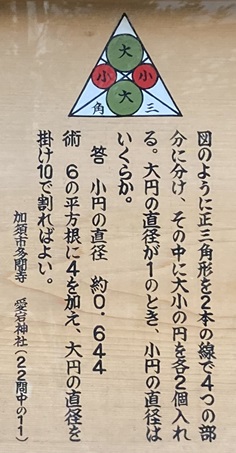 大
小
小
大
角
三
図のように正三角形を2本の線で4つの部
分に分け、その中に大小の円を各2個入れ
る。大円の直径が1のとき、小円の直径は
いくらか。
答 小円の直径 約0.644
術 6の平方根に4を加え、大円の直径を
掛け10で割ればよい。
加須市多聞寺 愛宕神社(22問中の11)